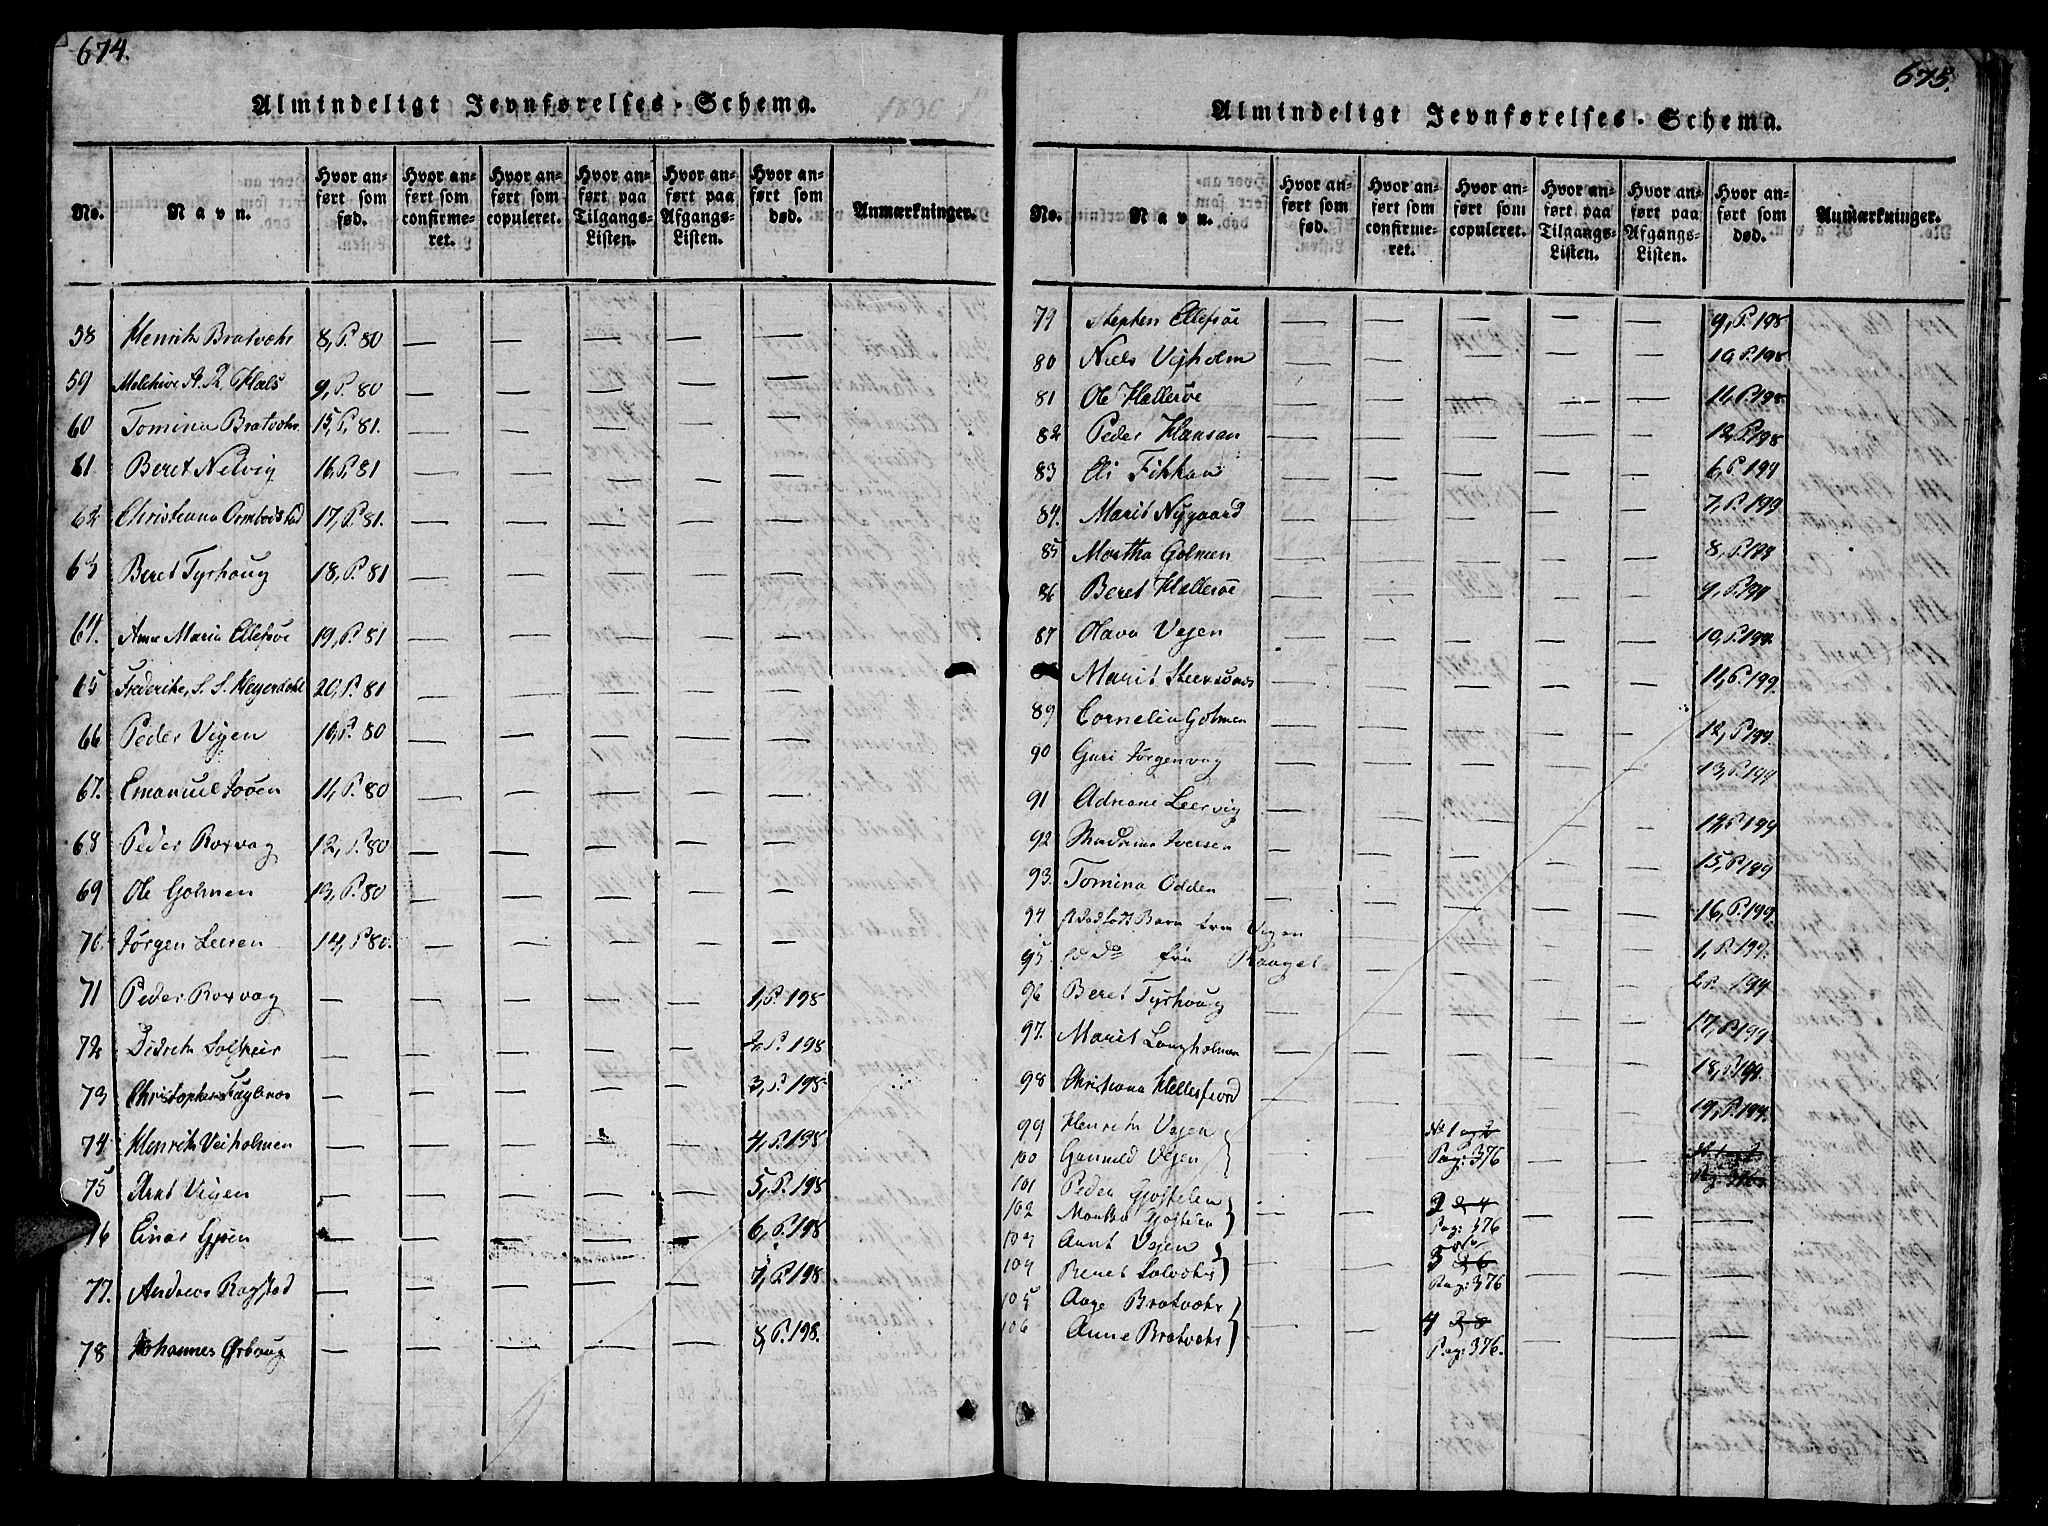 674.
Almindeligt Jevnførelses-Schema.
No. Navn. Hvor anført som fød. Hvor anført som confirmeret. Hvor anført som copuleret. Hvor anført paa Tilgangs-Listen. Hvor anført paa Afgangs-Listen. Hvor anført som død. Anmærkninger.
58 Henrik Bratvær 8, P. 80 — — — — —
59 Melchior A. R. Hals 9, P. 80 — — — — —
60 Tomina Bratvær 15, P. 81. — — — — —
61 Beret Nelvig 16, P. 81 — — — — —
62 Christiana Ormbostad 17, P. 81. — — — — —
63 Beret Tyrhaug 18, P. 81 — — — — —
64. Ane Maria Ellefsøe 19, P. 81 — — — — —
65 Frederike, S. S. Heyerdahl 20, P. 81 — — — — —
66 Peder Vigen 10, P. 80 — — — — —
67. Emanuel 11, P. 80 — — — — —
68 Peder Roxvag 12, P. 80 — — — — —
69 Ole Golmen 13, P. 80 — — — — —
70. Jørgen Leeren 14, P. 80. — — — — —
71 Peder Roxvag — — — — — 1, P. 198
72 Didrich — — — — — 2, P. 198
73 Christopher — — — — — 3, P. 198
74 Henrik Veiholmen — — — — — 4, P. 198
75 Arnt Vigen — — — — — 5, P. 198
76 Einar — — — — — 6, P. 198
77. Andreas Rogstad — — — — — 7, P. 198
78 Johannes — — — — — 8, P. 198.
675.
Almindeligt Jevnførelses-Schema.
No. Navn. Hvor anført som fød. Hvor anført som confirmeret. Hvor anført som copuleret. Hvor anført paa Tilgangs-Listen. Hvor anført paa Afgangs-Listen. Hvor anført som død. Anmærkninger.
79 Stephen Ellefsøe — — — — — 9, P. 198
80 Niels Vejholm — — — — — 10, P. 198
81 Ole Hallerøe — — — — — 11, P. 198
82 Peder Hansen — — — — — 12, P. 198
83 Eli Fikkan — — — — — 6, P. 199
84. Marit Nygaard — — — — — 7, P. 199
85 Martha Golmen — — — — — 8, P. 199
86 Beret Hallerøe — — — — — 9, P. 199
87 Olava Vejen — — — — — 10, P. 199.
Marit — — — — — 11, P. 199.
89 Cornelia Golmen — — — — — 12, P. 199.
90 Guri Jørgenvag — — — — — 13, P. 199
91 Adriane Leervig — — — — —
92 Iversen — — — — — P. 199
93. Tomina Odden — — — — — 15, P. 199
94 Barn fra Vigen — — — — — 16, P. 199.
95. do fra — — — — — 1, P. 199.
96 Beret Tyrhoug — — — — — 2 P. 199
97. Marit Langholmen — — — — — 17, P. 199
98 Christiana Hellesfiord — — — — — 18, P. 199.
19, P. 199.
99 Henrik Vejen
100 Gunnild Vejen — — No 1 og 2 Pag: 376 — —
101 Peder
102 Martha — — 2 3, 4 Pag: 376 — — —
103 Arnt Vejen
104 Beret — — 3 5, 6 Pag: 376 — — —
105 Aage Bratvær
106 Anne Bratvær — — 4 7, 8 Pag: 376. — — —